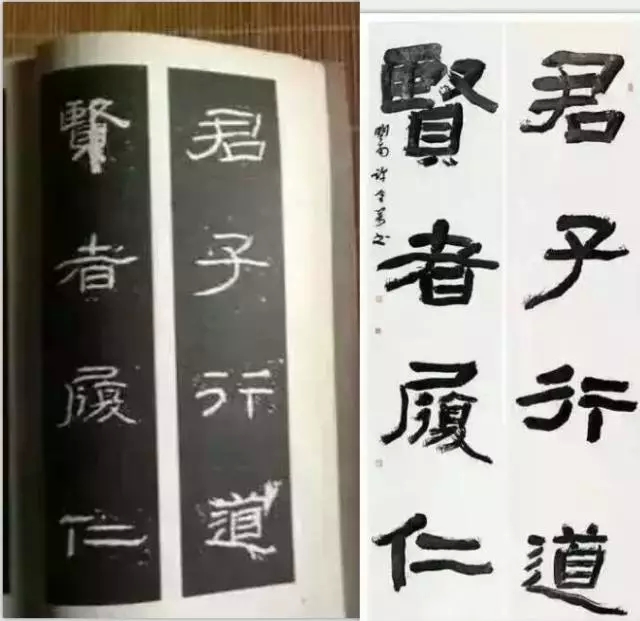 君子行道
賢者履仁
君子行道
賢者履仁